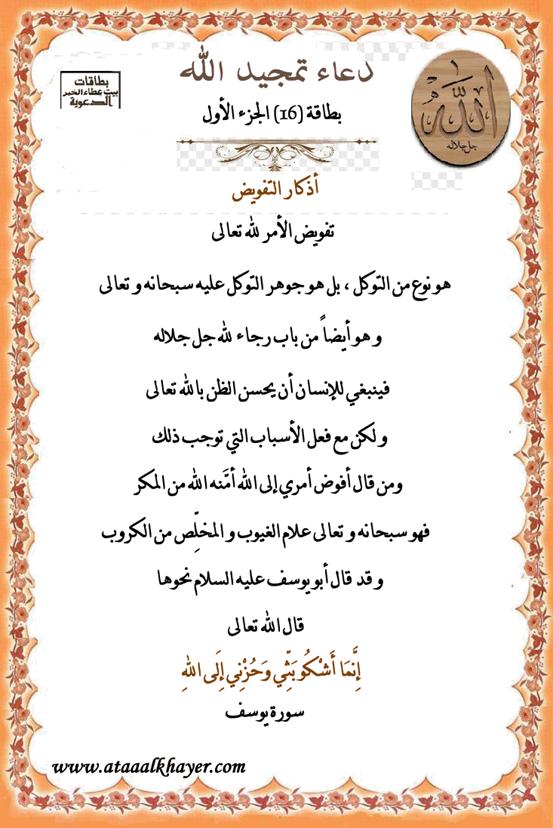 دعاء تمجيد الله
بطاقات
بيت عطاء الخير
الدعوية
الله
جل جلاله
بطاقة (16) الجزء الأول
أذكار التفويض
تفويض الأمر لله تعالى
هو نوع من التوكل ، بل هو جوهر التوكل عليه سبحانه و تعالى
و هو أيضاً من باب رجاء لله جل جلاله
فينبغي للإنسان أن يحسن الظن بالله تعالى
و لكن مع فعل الأسباب التي توجب ذلك
ومن قال أفوض أمري إلى الله أمَّنه الله من المكر
فهو سبحانه و تعالى علام الغيوب و المخلِّص من الكروب
و قد قال أبو يوسف عليه السلام نحوها
قال الله تعالى
إِنَّمَا أَشْكُو بَثِّي وَحُزْنِي إِلَى اللهِ
سورة يوسف
www.ataaalkhayer.com